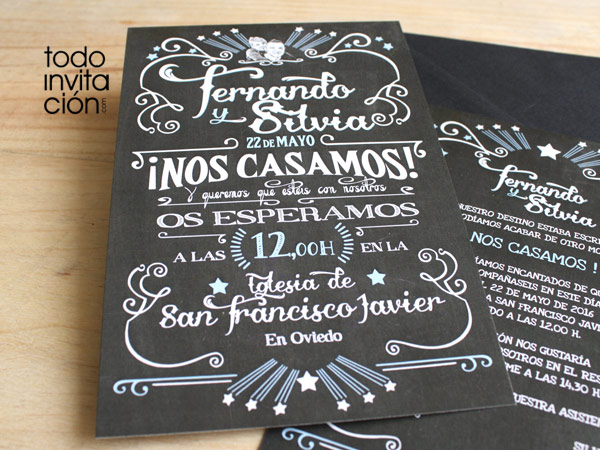 todo
invita
ción.com
Fernando
y Silvia
22 DE MAYO
¡NOS CASAMOS!
Y queremos que estéis con nosotros
OS ESPERAMOS
A LAS 12,00H EN LA
Iglesia de
San Francisco Javier
En Oviedo
Fernando
y Silvia
NUESTRO DESTINO ESTABA ESCRI
PODÍAMOS ACABAR DE OTRO MO
¡NOS CASAMOS !
ENCANTADOS DE QU
COMPAÑASEIS EN ESTE DÍA
22 DE MAYO DE 2016
SAN FRANCISCO JAVI
A LAS 12.00 H.
NOS GUSTARÍA
NOSOTROS EN EL RES
A LAS 14.30 H
UESTRA ASISTEN